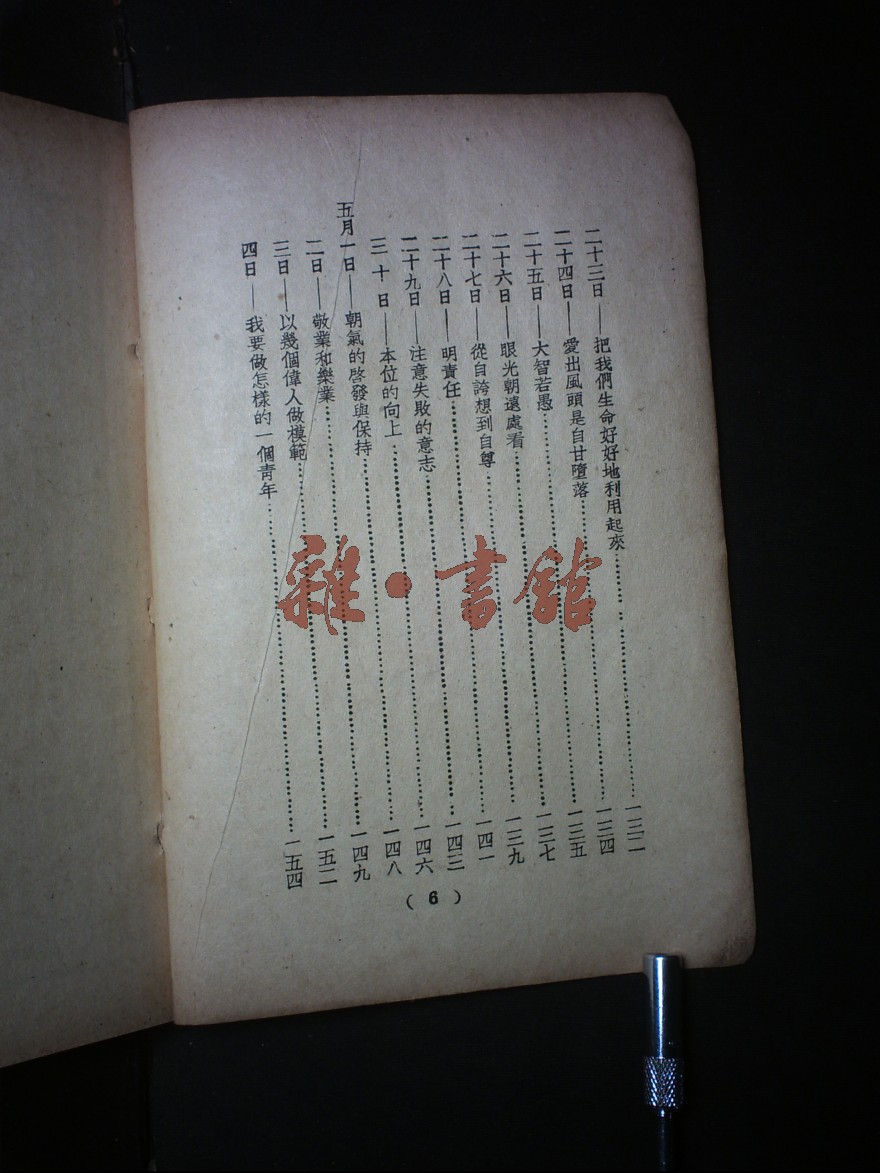 二十三日——把我們生命好好地利用起來……一三二
二十四日——愛出風頭是自甘墮落……一三四
二十五日——大智若愚……一三五
二十六日——眼光朝遠處看……一三七
二十七日——從自誇想到自尊……一三九
二十八日——明責任……一四一
二十九日——注意失敗的意志……一四三
三十日——本位的向上……一四六
五月一日——朝氣的啓發與保持……一四八
二日——敬業和樂業……一四九
三日——以幾個偉人做模範……一五二
四日——我要做怎樣的一個靑年……一五四
( 6 )
雜·書館